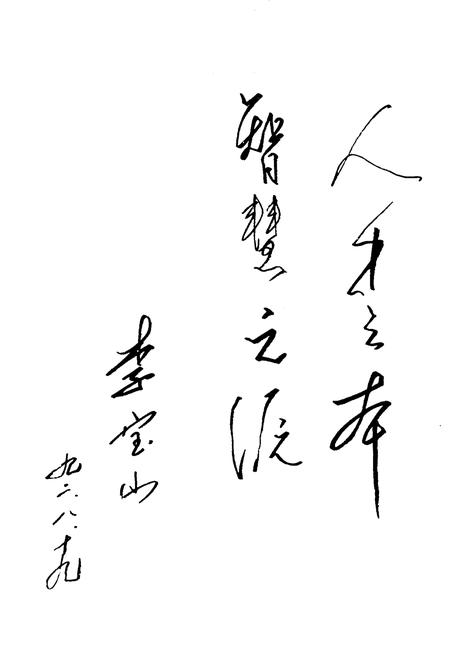 人才之本
智慧之源
李宝山
九二.八.十九